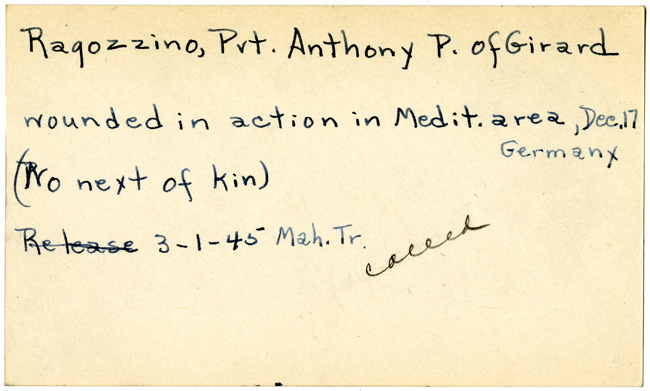 Ragozzino, Pvt. Anthony P. of Girard
wounded in action in Medit. area, Dec. 17
Germany
(No next of kin)
Release 3-1-45 Mah. Tr.
called